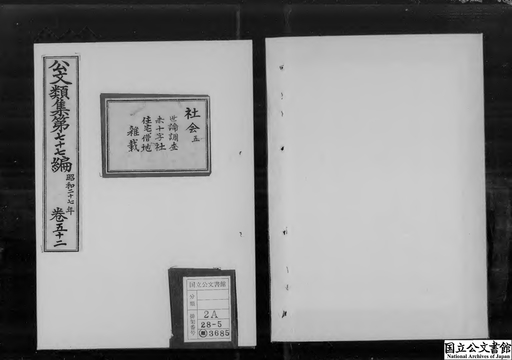 公文類集第七十七編
昭和二十七年
巻五十二
社会五
世論調査
赤十字社
住宅借地
雑載
国立公文書館
分類
排架番号
2A
28-5
3685
国立公文書館
National Archives of Japan